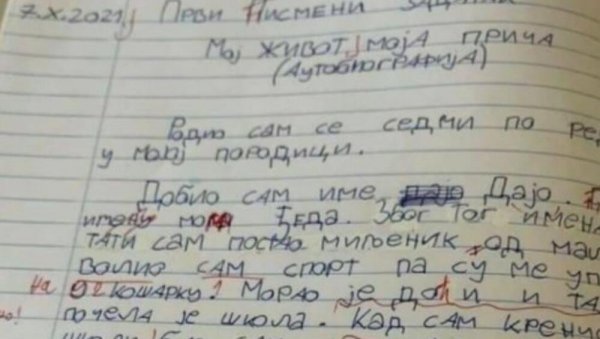 7.X.2021. Први писмени
Мој живот, моја прича
(Аутобиографија)
Родио сам се седми по ре
у мојој породици.
Добио сам име Дајо.
имену мога ђеда. Због тог имена
тати сам постао миљеник, од ма
волио сам спорт па су ме уп
на кошарку! Морао је доћи и та
почела је школа. Кад сам крену